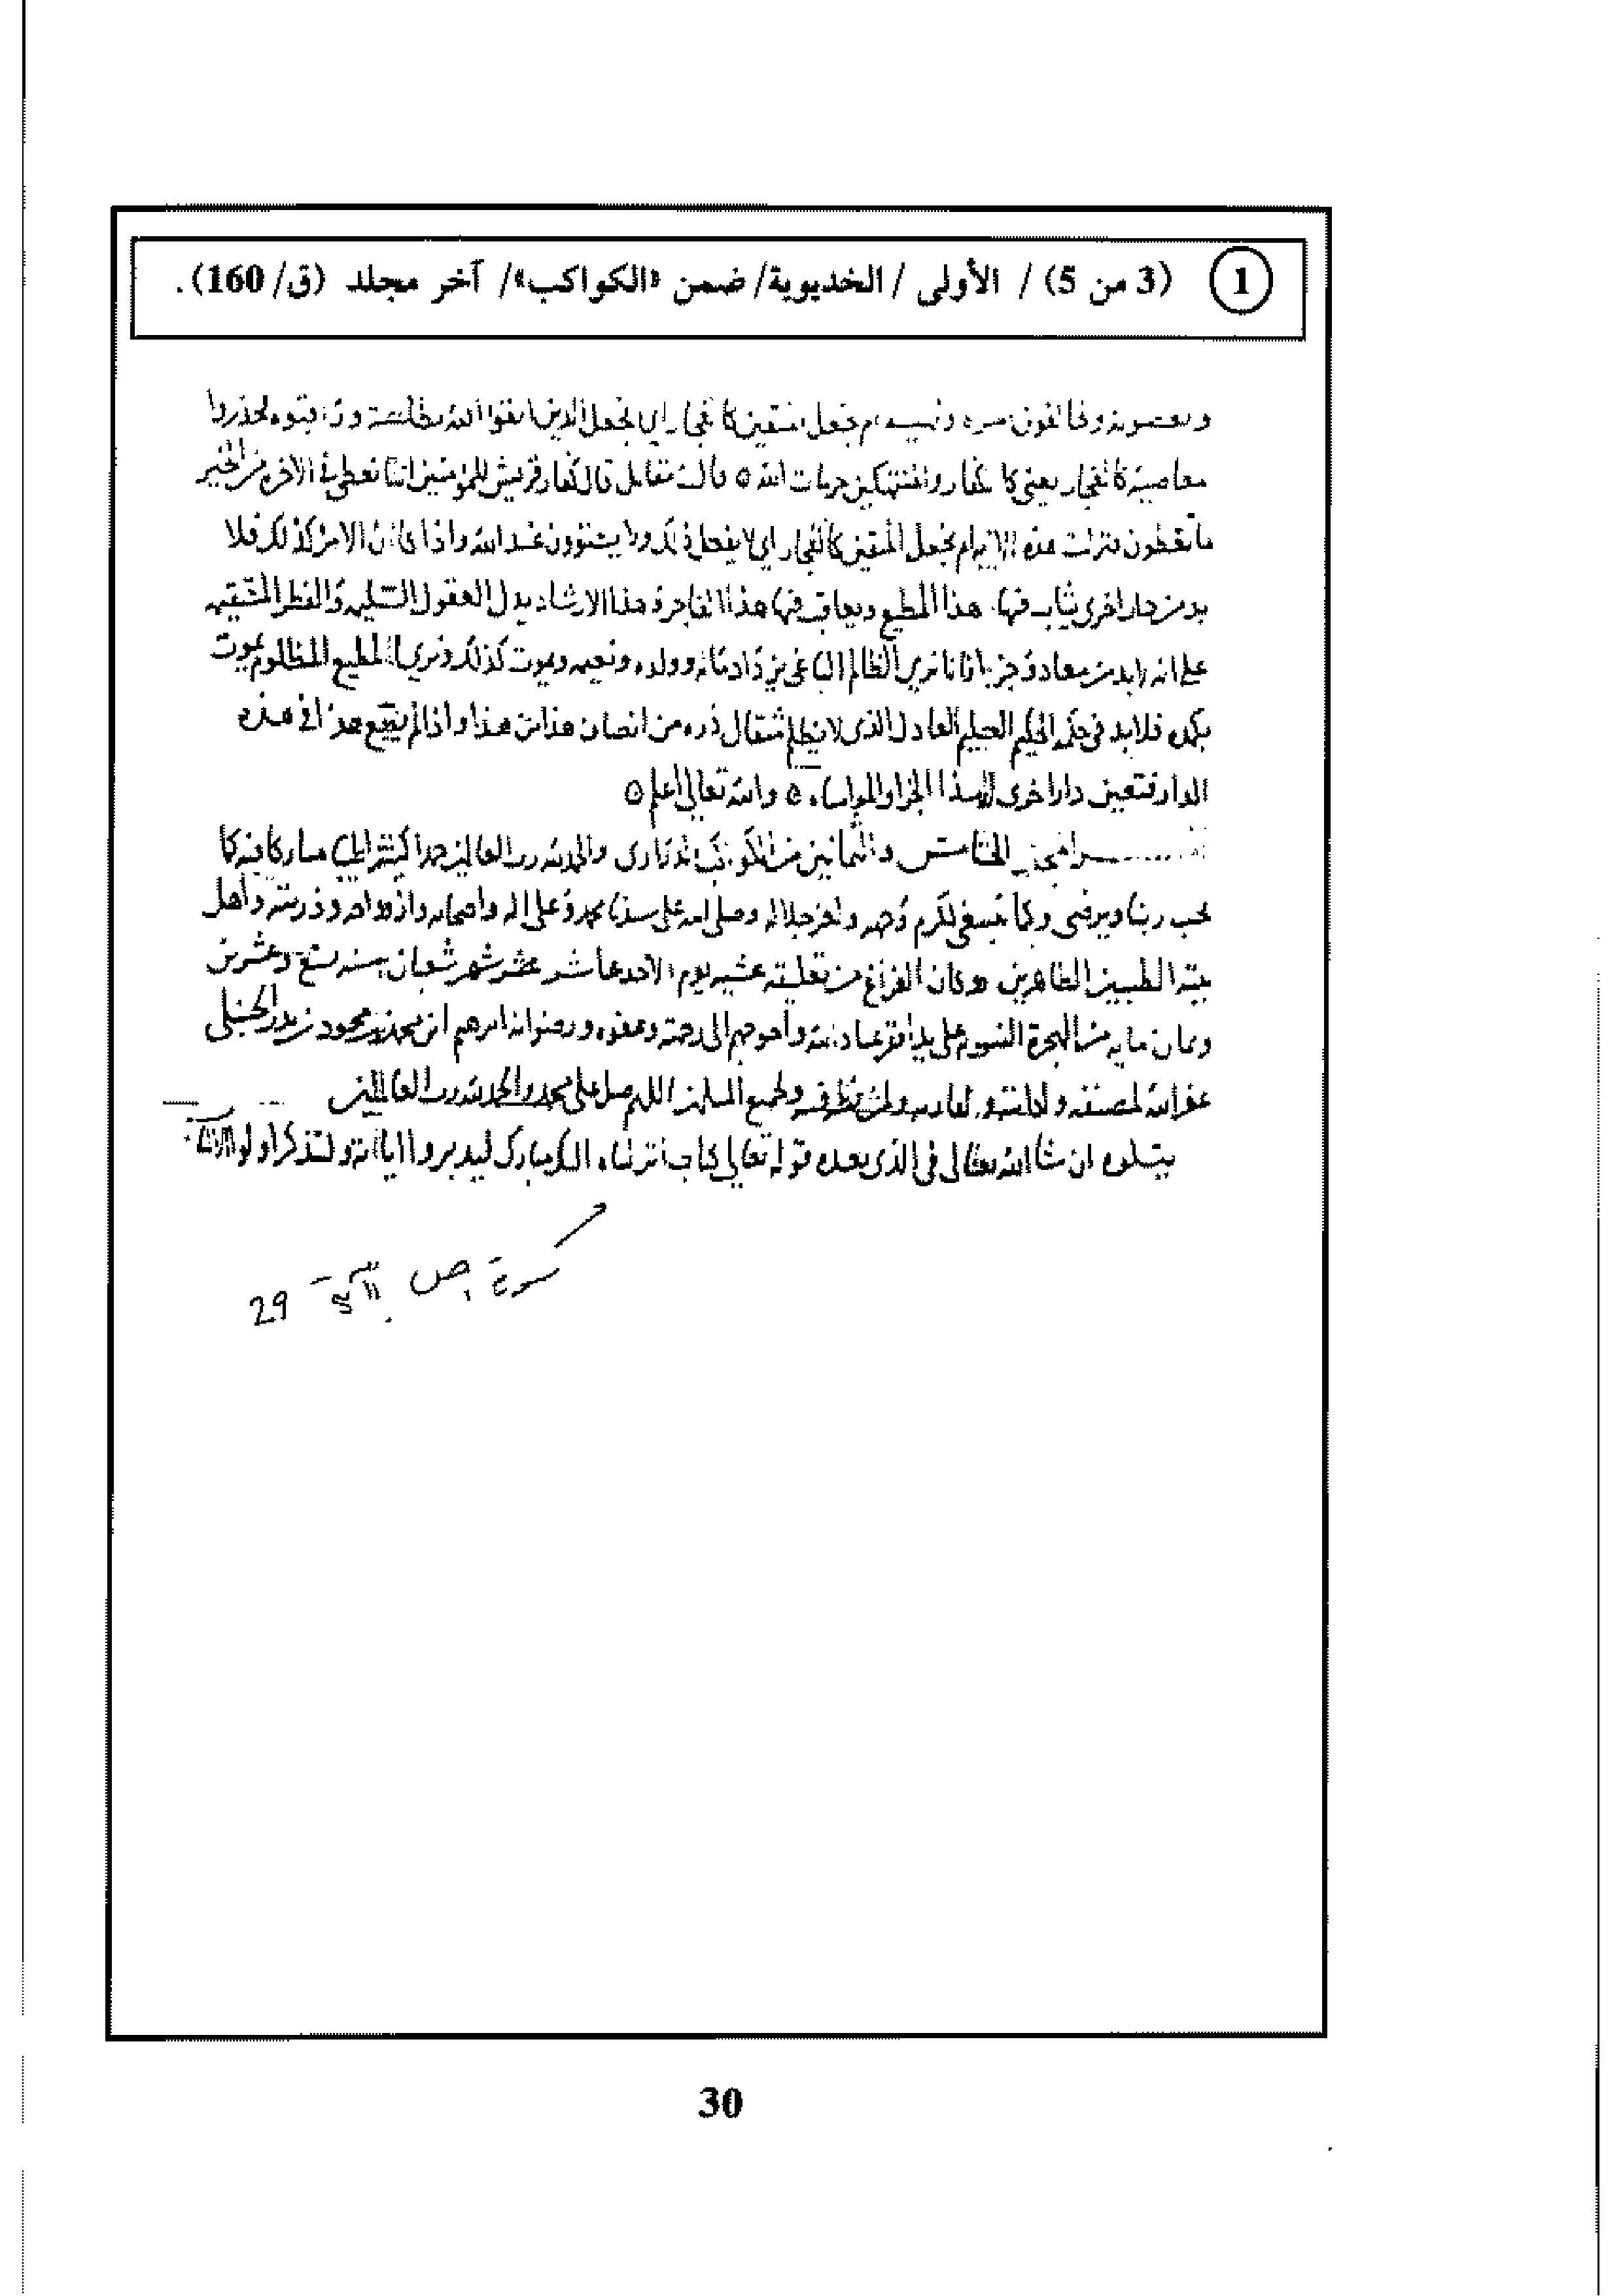 1 (3 من 5) / الأولى / الخديوية/ ضمن «الكواكب»/ آخر مجلد (ق/ 160).
ويخالفون أمره ونهيه أم نجعل المتقين كالفجار اي نجعل الذين اتقوا الله بطاعته وراقبوه فحذروا
معاصيه كالفجار يعني كالكفار والمنتهكين حرمات الله ٥ قال مقاتل قال كفار قريش للمؤمنين انا نعطى في الآخره من الخير
ما تعطون فنزلت هذه الاية ام نجعل المتقين كالفجار اي لا نفعل ذلك ولا يستوون عند الله واذا كان الامر كذلك فلا
بد من دار اخرى يثاب فيها هذا المطيع ويعاقب فيها هذا الفاجر وهذا الارشاد يدل العقول السليمه والفطر المستقيمه
على انه لابد من معاد وجزا فانا نرى الظالم الباغي يزداد ماله وولده ونعيمه ويموت كذلك ونرى المطيع المظلوم يموت
بكمده فلابد في حكمه الحكيم العليم العادل الذي لا يظلم مثقال ذره من انصاف هذا من هذا واذا لم يقع هذا في هذه
الدار فتعين دارا اخرى لهذا الجزا والمواساه ٥ والله تعالى اعلم ٥
الخامس والثمانين من الكواكب الدراري والحمد لله رب العالمين حمدا كثيرا طيبا مباركا فيه كما
يحب ربنا ويرضى وكما ينبغي لكرم وجهه وعز جلاله وصلى الله على سيدنا محمد وعلى اله واصحابه وازواجه وذريته واهل
بيته الطيبين الطاهرين وكان الفراغ من تعليقه عشيه يوم الاحد عشر شهر شعبان سنه وعشرين
وثمان مايه من الهجرة النبويه على يد افقر عباد الله واحوجهم الى رحمته وعفوه ورضوانه ابرهيم ابن محمد بن محمود بن بدر الحنبلي
غفر الله لمصنفه ولكاتبه ولقاريه ولمن نظر فيه ولجميع المسلمين اللهم صل على محمد والحمد لله رب العالمين
يتلوه ان شا الله تعالى في الذي بعده قوله تعالى كتاب انزلناه اليك مبارك ليدبروا اياته وليتذكر اولو الالباب
سورة ص الآية 29
30